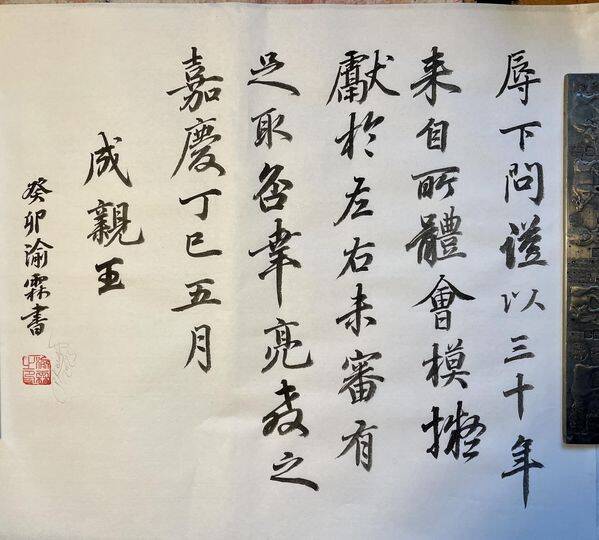 辱下問謹以三十年
来自所體會模擬
獻於左右未審有
足取否幸亮教之
嘉慶丁巳五月
成親王
癸卯渝霖書